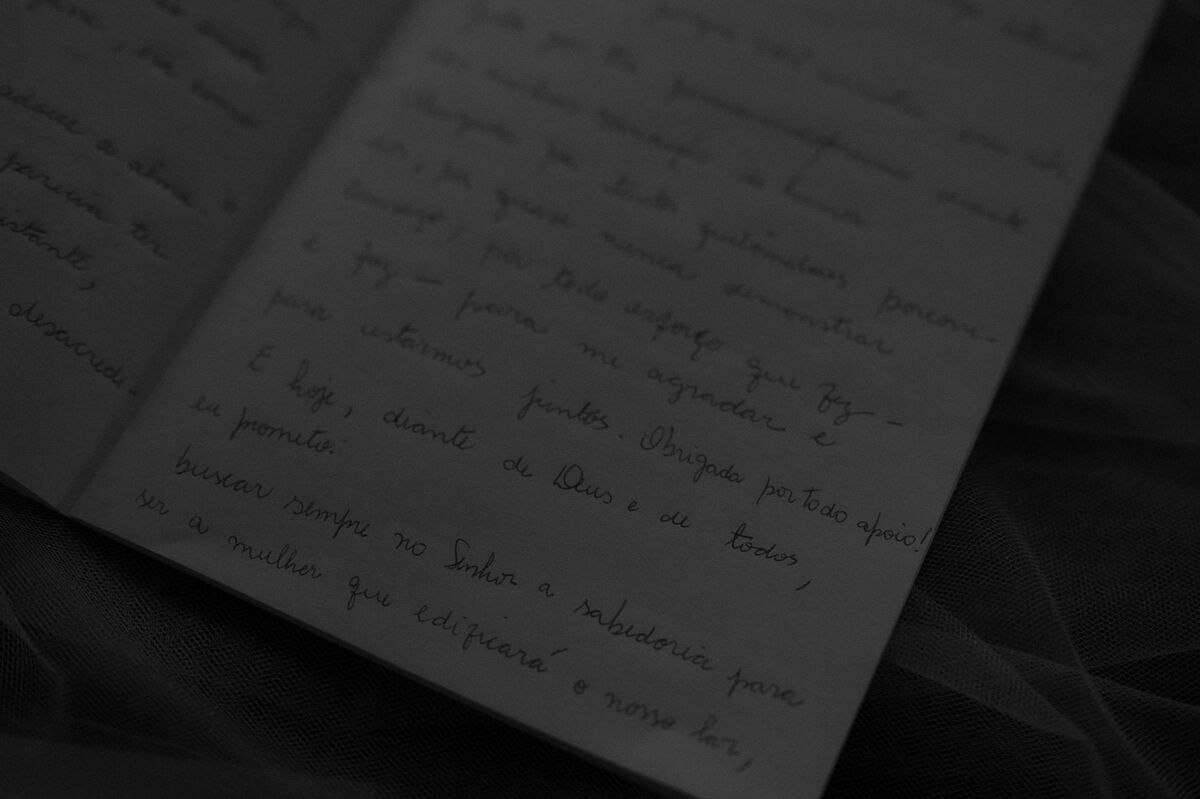 era como
adoece a alma.
parecia ter
istante,
desacredi-
porque você
por
as minhas variações de humor
Obrigada por tantos quilômetros percorri-
dos, por quase nunca demonstrar
cansaço, por todo esforço que fez –
e faz – para me agradar e
para estarmos juntos. Obrigada por todo apoio!
E hoje, diante de Deus e de todos,
eu prometo:
buscar sempre no Senhor a sabedoria para
ser a mulher que edificará o nosso lar,